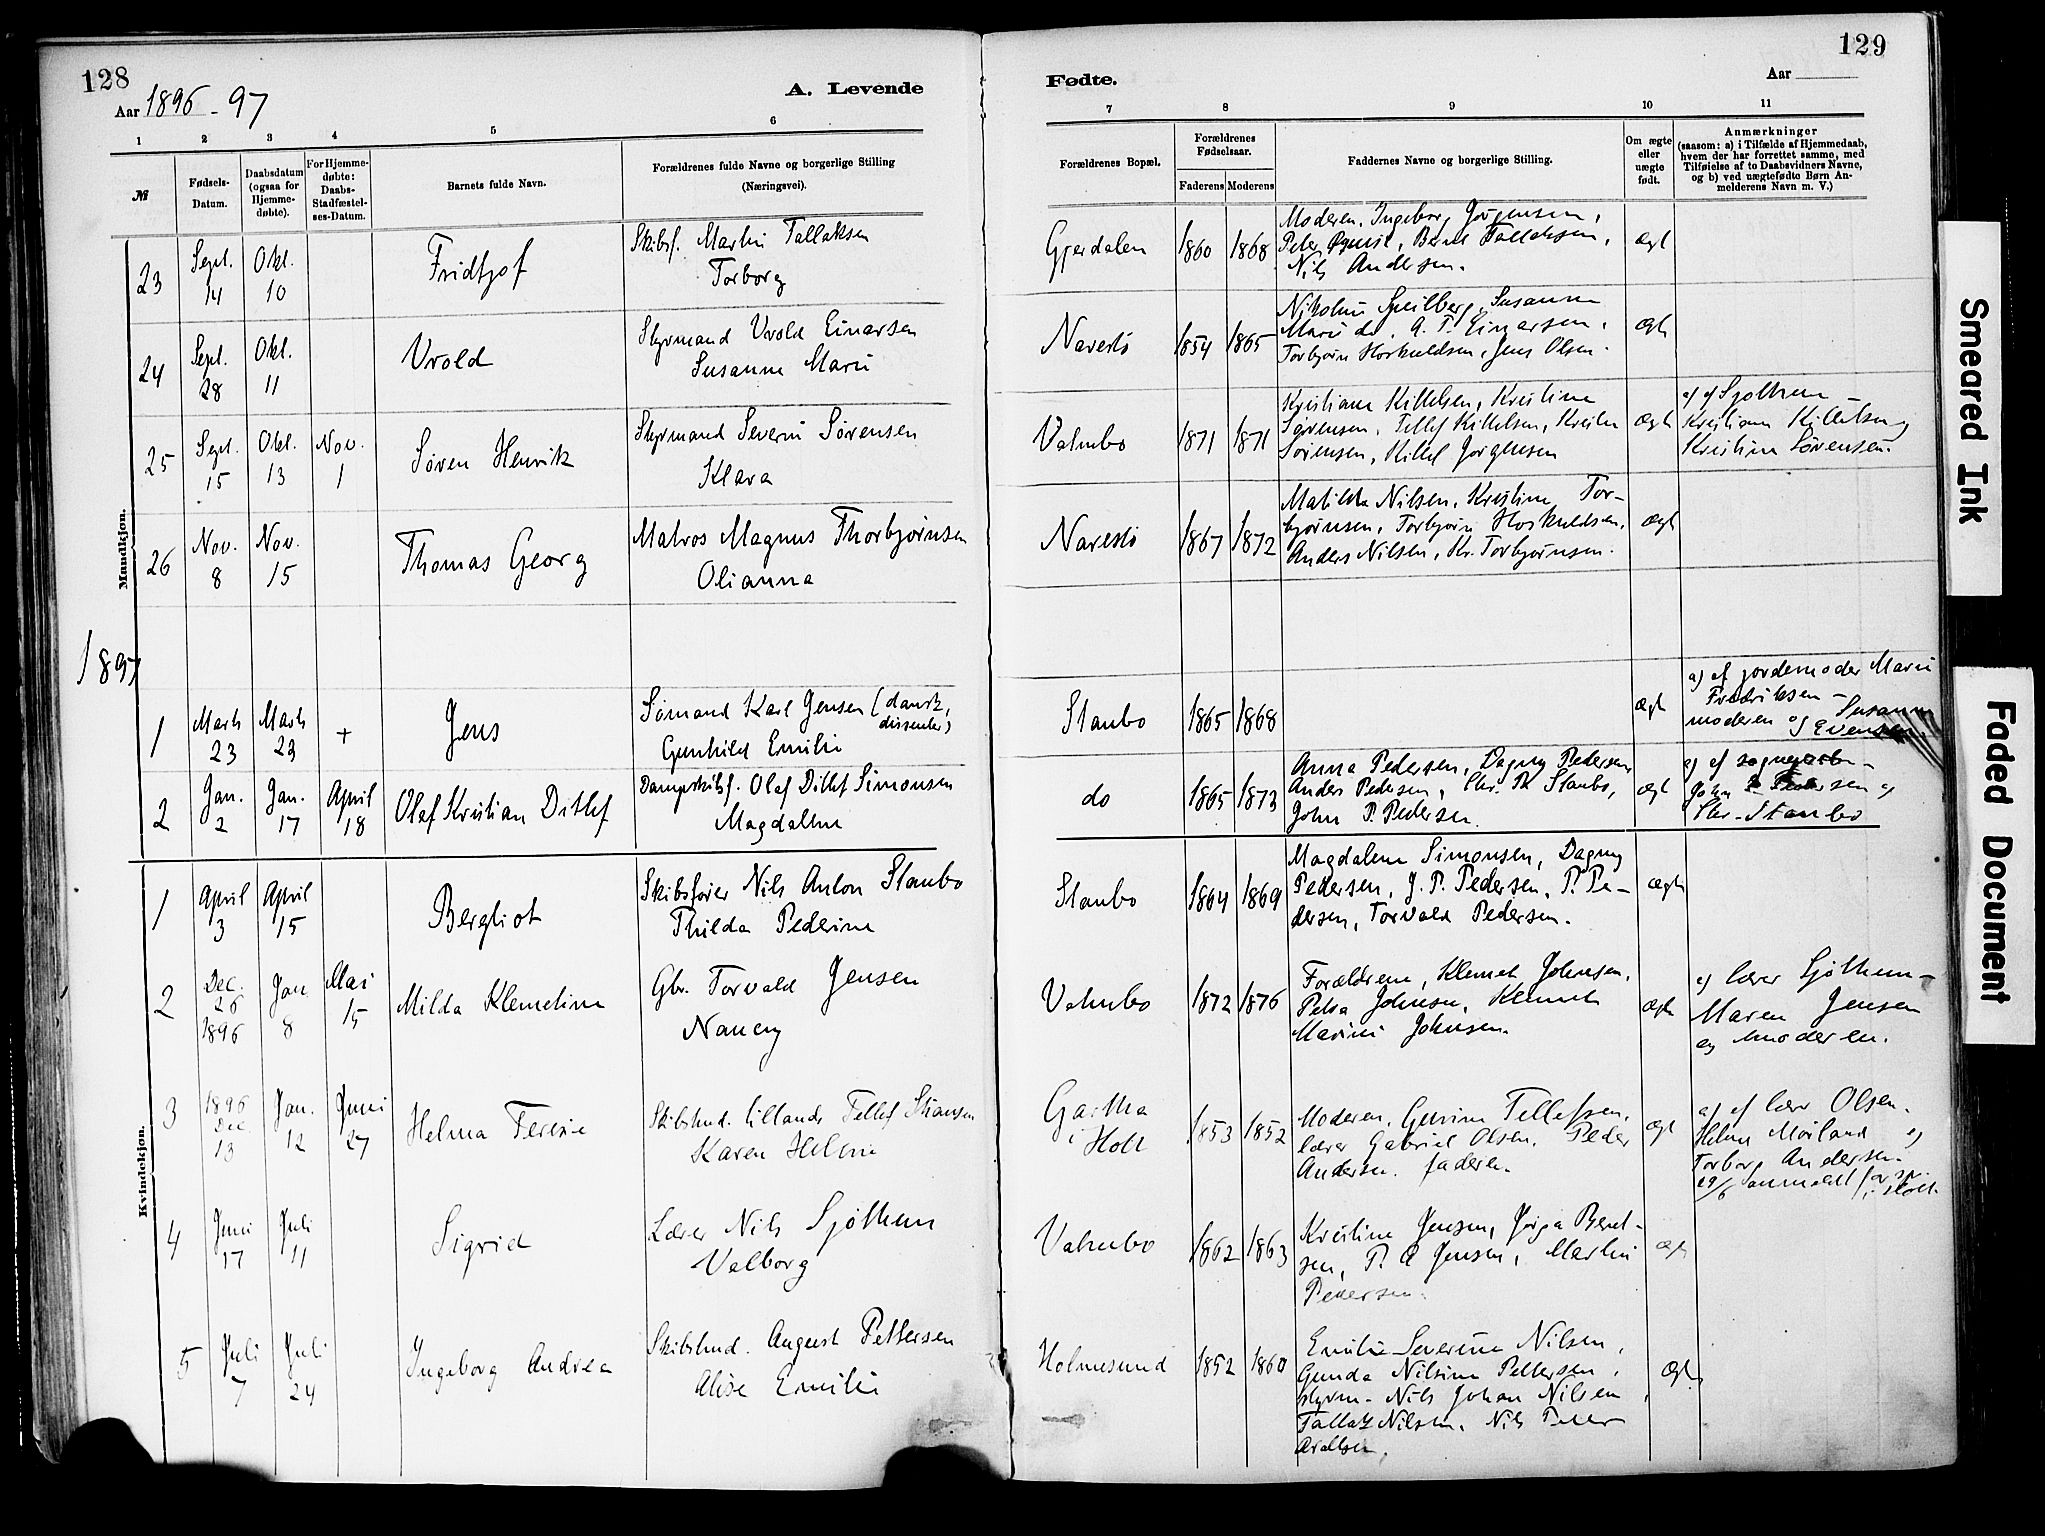 128
Aar 1896-97
A. Levende
1 2 3 4 5 6
№
Fødsels-Datum.
Daabsdatum (ogsaa for Hjemme-døbte).
For Hjemme-døbte: Daabs-Stadfæstel-ses-Datum.
Barnets fulde Navn.
Forældrenes fulde Navne og borgerlige Stilling
(Næringsvei).
Mandkjøn.
23 Sept. 14 Okt. 10 Fridtjof Skibsf. Martin Tallaksen
Torborg
24 Sept. 28 Okt. 11 Vrold Styrmand Vrold Einarsen
Susanne Marie
25 Sept. 15 Okt. 13 Nov. 1 Søren Henrik Styrmand Severin Sørensen
Klara
26 Nov. 8 Nov. 15 Thomas Georg Matros Magnus Thorbjørnsen
Olianna
1897
1 Marts 23 Marts 23 + Jens Sømand Karl Jensen (dansk, dissenter)
Gunhild Emilie
2 Jan. 2 Jan. 17 April 18 Olaf Kristian Ditlef Dampskibsf. Olaf Ditlef Simonsen
Magdalene
Kvindekjøn.
1 April 3 April 15 Bergliot Skibsfører Nils Anton Staubo
Thilda Pederine
2 Dec. 26 1896 Jan 8 Mai 15 Milda Klemetine Gbr. Torvald Jensen
Nancy
3 1896 Dec 13 Jan. 12 Juni 27 Helma Teresie Skibstmd. Tellef Stiansen
Karen Helene
4 Juni 17 Juli 11 Sigrid Lærer Nils Sjøthun
Valborg
5 Juli 7 Juli 24 Ingeborg Andrea Skibstmd. August Pettersen
Alise Emilie
129
Fødte.
Aar
7 8 9 10 11
Forældrenes Bopæl.
Forældrenes Fødselsaar.
Faderens Moderens
Faddernes Navne og borgerlige Stilling.
Om ægte eller uægte født.
Anmærkninger
(saasom: a) i Tilfælde af Hjemmedaab,
hvem der har forrettet samme, med
Tilføielse af to Daabsvidners Navne,
og b) ved uægtefødte Børn An-
melderens Navn m. V.)
Gjerdalen 1860 1868 Moderen, Ingeborg Jørgensen,
Peter Øquist, Bernt Tallaksen,
Nils Andersen. ægt
Narestø 1854 1865 Nikoline Speilberg, Susanne
Marie do, A. T. Einarsen,
Torbjørn Hoskuldsen, Jens Olsen. ægte
Valnebo 1871 1871 Kristiane Kittelsen, Kristine
Sørensen, Tellef Kittelsen, Kristen
Sørensen, Kittel Jørgensen ægte
a) af Sjøthun –
Kristiane Kittelsen og
Kristine Sørensen.
Narestø 1867 1872 Matilda Nilsen, Kristine Tor-
bjørnsen, Torbjørn Hoskuldsen,
Anders Nilsen, Kr. Torbjørnsen. ægt
Staubo 1865 1868 ægte
a) af jordemoder Marie
Fredriksen –
moderen og Susanne
Evensen.
do 1865 1873 Anna Pedersen, Dagny Pedersen
Anders Pedersen, Chr. Th Staubo,
John P. Pedersen. ægt
a) af sogneprsten –
John P Pedersen og
Chr. Staubo
Staubo 1864 1869 Magdalene Simonsen, Dagny
Pedersen, J. P. Pedersen, P. Pe-
dersen, Torvald Pedersen. ægte
Valnebo 1872 1876 Forældrene, Klemet Johnsen,
Petra Johnsen, Klemet
Marini Johnsen. ægte
a) lærer Sjøthun –
Maren Jensen
og moderen.
Gartha i Holt 1853 1852 Moderen, Gurine Tellefsen,
lærer Gabriel Olsen, Peder
Andersen. faderen. ægt
a) af lærer Olsen.
Helene Moiland og
Torborg Andersen.
29/6 anmeldt for sp. i Holt
Valnebo 1862 1863 Kristine Jensen, Jørga Bernt-
sen, P. A Jensen, Martin
Pedersen. ægt
Holmesund 1852 1860 Emilie Severine Nilsen,
Gunda Nilsine Pettersen,
styrm. Nils Johan Nilsen,
Tallak Nilsen, Nils Peter
Aralsen. ægt.
Smeared Ink
Faded Document